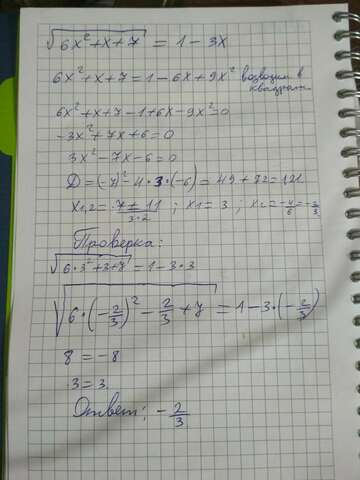 √6x²+x+7 = 1-3x
6x²+x+7=1-6x+9x² возводим в
квадрат
6x²+x+7-1+6x-9x²=0
-3x²+7x+6=0
3x²-7x-6=0
D=(-7)²-4·3·(-6)=49+72=121
x1,2=7±11/3·2; x1=3; x2=-4/6=-2/3
Проверка:
√6·3²+3+7=1-3·3
√6·(-2/3)²-2/3+7=1-3·(-2/3)
8=-8
3=3
Ответ: -2/3